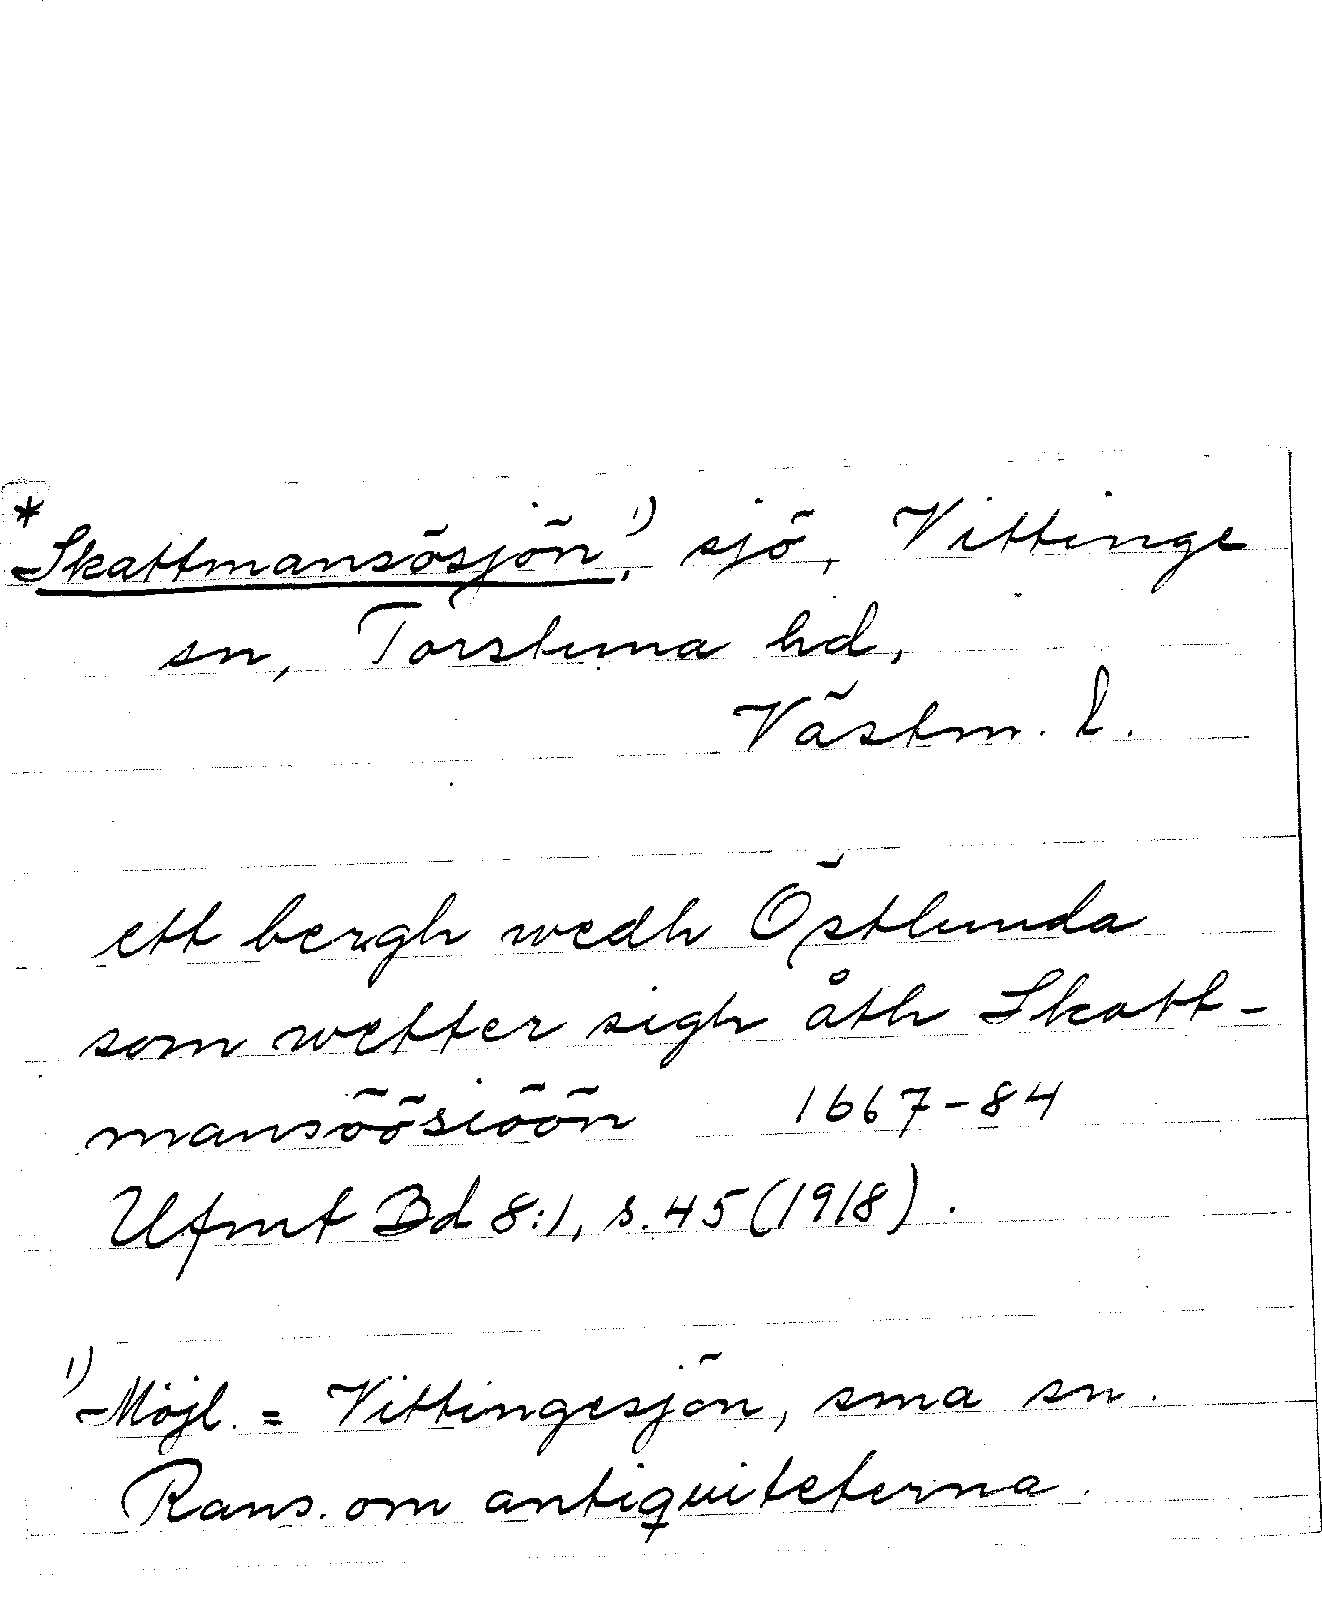 * Skattmansösjön,¹⁾ sjö, Vittinge
sn, Torstuna hd,
Västm. l.
ett bergh wedh Östlunda
som wetter sigh åth Skatt-
mansöösiöön 1667-84
Ufmt Bd 8:1, s. 45 (1918).
¹⁾ Möjl. = Vittingesjön, sma sn.
Rans. om antiquiteterna.